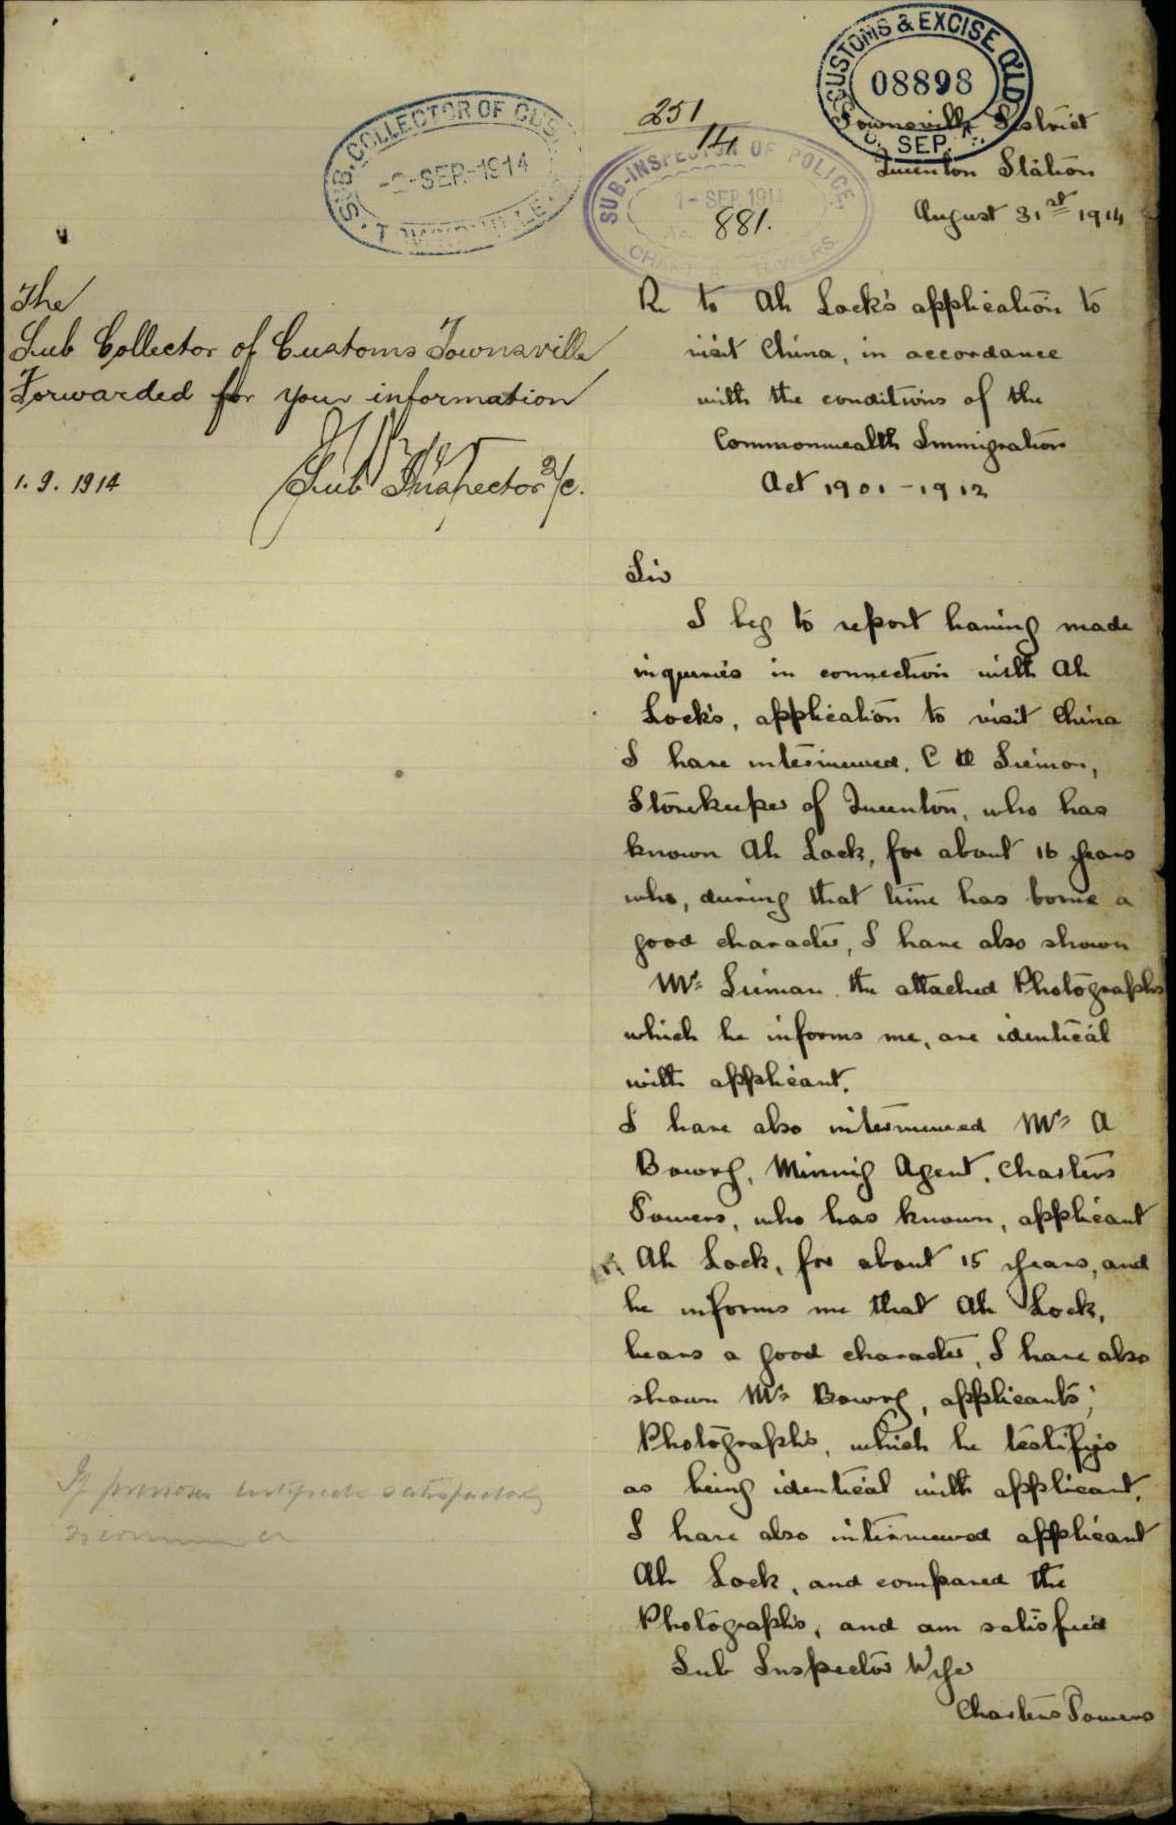 CUSTOMS & EXCISE QLD
08898
SEP.
SUB. COLLECTOR OF CUS
SEP. 1914
TOWNSVILLE
251
14
SUB-INSPECTOR OF POLICE,
1- SEP 191
CHARTERS TOWERS
881.
Townsville District
Queenton Station
August 31st 1914
The
Sub Collector of Customs Townsville
Forwarded for your information
Sub Inspector a/c.
1. 9. 1914
Re to Ah Lock's application to
visit China, in accordance
with the conditions of the
Commonwealth Immigration
Act 1901 - 1912
Sir
I beg to report having made
inqueries in connection with Ah
Lock's, application to visit China
I have interviewed, C Siemon,
Storekeeper of Queenton, who has
known Ah Lock, for about 16 years
who, during that time has borne a
good character, I have also shown
Mr Sieman the attached Photographs
which he informs me, are identical
with applicant.
I have also interviewed Mr A
Bowrg, Minnig Agent. Charters
Towers, who has known, applicant
Ah Lock, for about 15 years, and
he informs me that Ah Lock,
bears a good character, I have also
shown Mr Bowrg, applicants;
Photographs, which he testifys
as being identical with applicant.
I have also interviewed applicant
Ah Lock, and compared the
Photographs, and am satisfied
Sub Inspector
Charters Towers
satisfactory